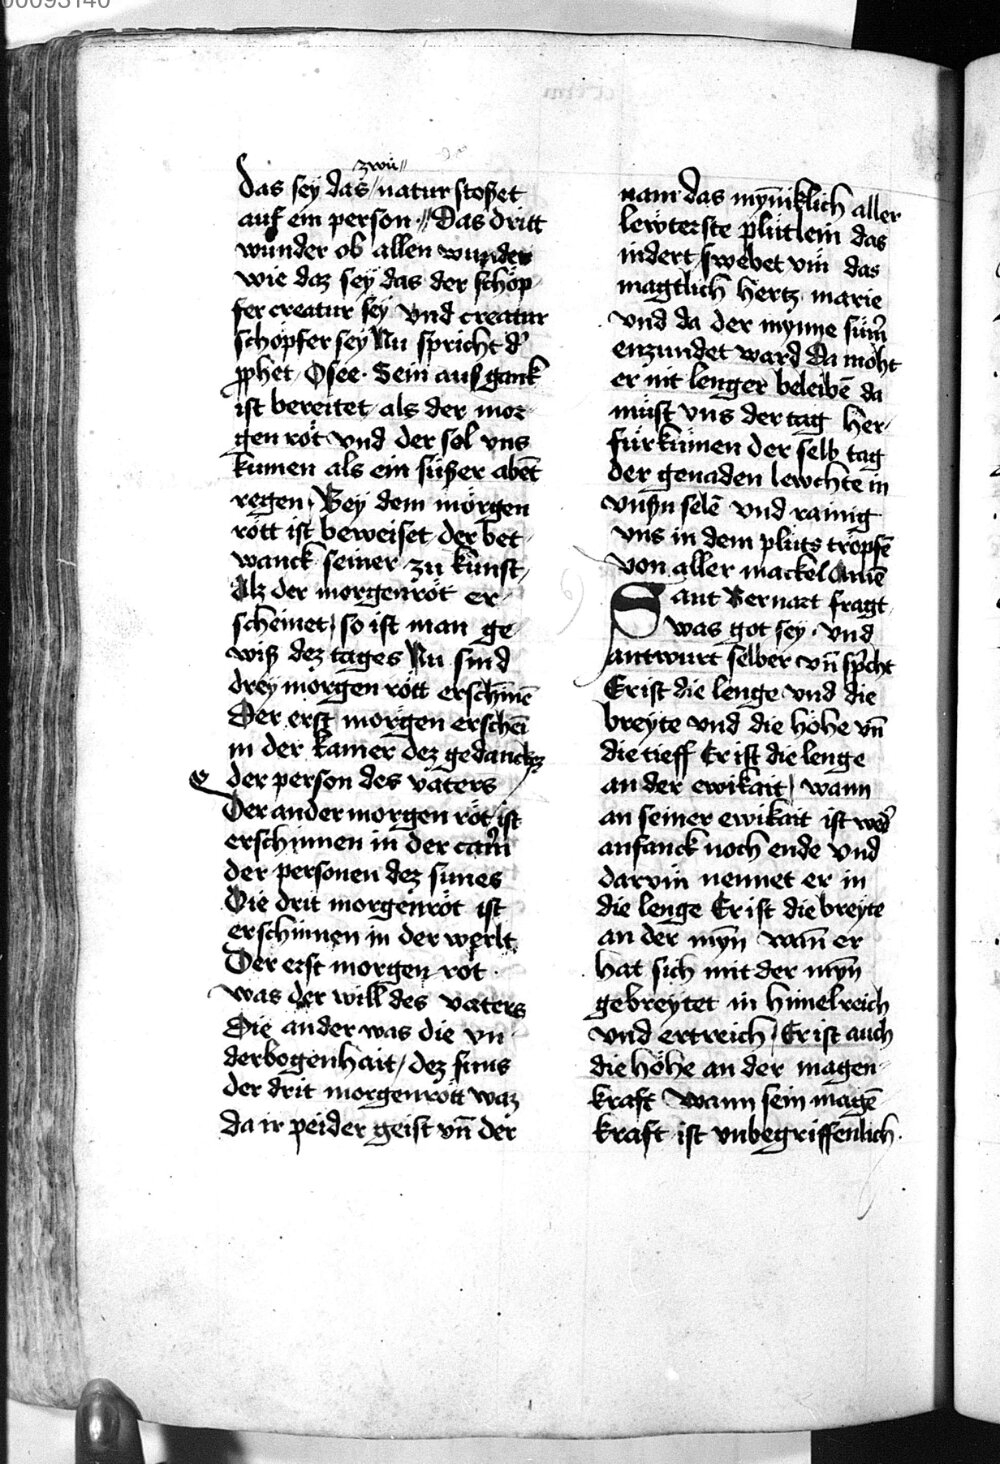 00093140
zwu
das sey das natur stosset
auf ein person Das dritt
wunder ob allen wunder
wie daz sey das der schöp
fer creatur sey vnd creatur
schöpfer sey Nu spricht d'
pphet Osee Sein ausgank
ist bereitet als der mor
gen röt vnd der sol vns
kumen als ein süsser abēt
regen Bey dem mörgen
rött ist beweiset der bet
wanck seiner zu kunft
Alz der morgenröt er
scheinet so ist man ge
wiß dez tages Nu sind
drey mörgen rött erschinē
Der erst mörgen erschei
in der kamer dez gedanckz
der person des vaters
Der ander morgen röt ist
erschinnen in der cam̄
der personen dez sunes
Die drit morgenröt ist
erschinnen in der werlt
Der erst morgen rot
was der will des vaters
Die ander was die vn
derbogenhait dez suns
der drit morgenrött waz
da ir peider geist vn̄ der
nam das mȳniklich aller
lewterste plütlein das
indert swebet vm̈ das
magtlich hertz marie
vnd da der mynne sūn
enzundet ward da möht
er nit lenger beleibē da
müst vns der tag her
für kümen der selb tag
der genaden lewchte in
vnßn selē vnd rainig
vns in dem pluts tröpfē
von aller mackel Amē
Sant Bernart fragt
was got sey vnd
antwurt selber vn̄ spcht
Er ist die lenge vnd die
breyte vnd die höhe vn̄
die tieff Er ist die lenge
an der ewikait wann
an seiner ewikait ist wed'
anfanck noch ende vnd
darvm̈ nennet er in
die lenge Er ist die breyte
an der mȳn wan̄ er
hat sich mit der mȳn
gebreytet in himelreich
vnd ertreich Er ist auch
die höhe an der magen
kraft Wann sein magē
kraft ist vnbegriffenlich